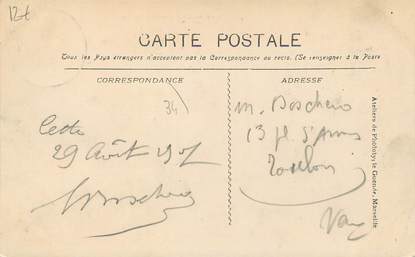 12€
CARTE POSTALE
Tous les Pays étrangers n'acceptent pas la Correspondance au recto. (Se renseigner à la Poste
CORRESPONDANCE
ADRESSE
34
Cette
29 Août 1907
M. Boschero
13 pl. d'Armes
Toulon
Var
Ateliers de Phototypie Guende, Marseille